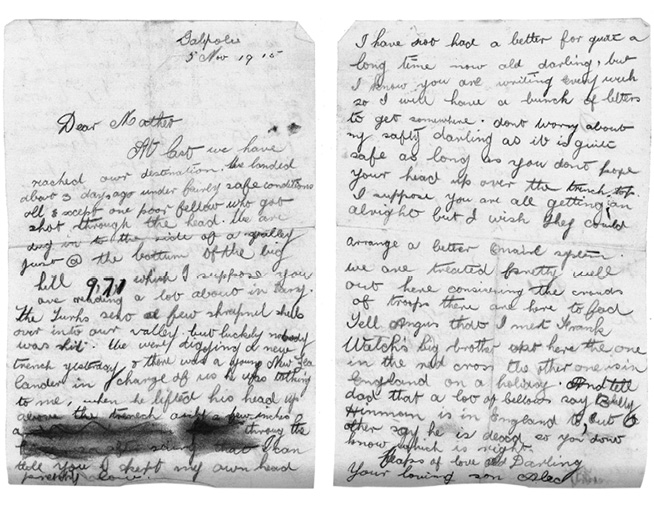 Galpolie
5 Nov 1915
Dear Mother
At last we have
reached our destination. We landed
about 3 days ago under fairly safe conditions
all except one poor fellow who got
shot through the head. We are
dug in to the side of a gulley
just @ the bottom of the big
hill 971 which I suppose you
are reading a lot about in
The Turks sent a few shrapnel shells
over into our valley but luckely nobody
was hit. We were digging a new
trench yesterday & there was a young New Zea
lander in charge of us & was talking
to me, when he lifted his head up
above the trench only a few inches &
through the
after seeing that I can
tell you I kept my own head
down.
I have not had a better for quite a
long time now old darling, but
I know you are writing every week
so I will have a bunch of letters
to get somewhere. dont worry about
my safty darling as it is quite
safe as long as you dont pope
your head up over the trench top.
I suppose you are all getting on
alright but I wish they could
arrange a better Email system.
we are treated pretty well
out here considering the crowds
of troops there are here to feed
Tell Angus that I met Frank
Welch's big brother out here the one
in the red cross the other one is in
England on a holiday. And tell
dad that a lot of fellows say Billy
Hinmom is in England to, but
other say he is dead so you dont
know which is right.
Heaps of love old Darling
Your loving son Alec